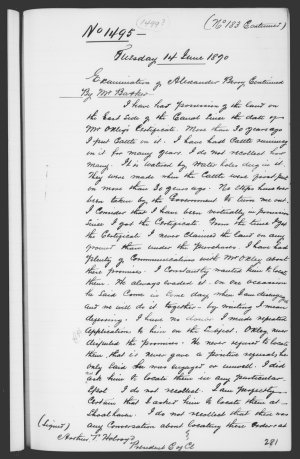 (1499?)
(No 183 Continued)
No 1495 -
Tuesday 14 June 1870
Examination of Alexander Berry Continued
By Mr Barker
I have had possession of the land on
the East side of the Canal since the date of
Mr Oxley's Certificate. More than 30 years ago
I put Cattle on it. I have had Cattle running
on it for many years. I do not recollect how
many. It is watered by Water holes dug in it.
They were made when the Cattle were first put
on more than 30 years ago. No steps have ever
been taken by the Government to turn me out.
I consider that I have been virtually in possession
since I got the Certificate. From the time I got
the Certificate I never claimed the land on any
ground than under the purchases. I have had
plenty of Communications with Mr Oxley about
these promises. I Constantly wanted him to locate
them. He always evaded it. on one occasion
he said Come in some day when I am
and we will do it together - by
deferring. I have no I made repeated
Application to him on the subject. Oxley never
disputed the promises. He never refused to locate
them that is never gave a positive refusal, he
only said he was engaged or unwell. I did
ask him to locate them in any particular
spot. I do not recollect. I am perfectly
Certain that I asked him to locate them at
Shoalhaven. I do not recollect that there was
any Conversation about locating these orders at
(signed)
President
281